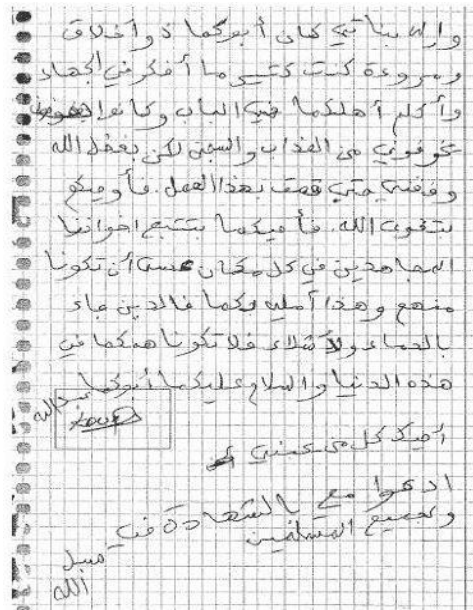 والله بناتي كان أبوكما ذو أخلاق
ومروءة كنت كتير ما أفكر في الجهاد
وأكلم أهلكما في الباب وكانوا
يخوفوني من العذاب والسجن لكن بفضل الله
وفقني حتى قمت بهذا العمل. فأوصيكم
بتقوى الله. فأصيكما بتتبع اخواننا
المجاهدين في كل مكان عسى أن تكونا
منهم وهذا أملي فيكما فالدين جاء
بالدماء والأشلاء فلا تكونا همكما في
هذه الدنيا والسلام عليكما أبوكما
عبد الله
كل من يحبني
ادعوا معي بالشهادة في
سبيل
الله
ولجميع المسلمين